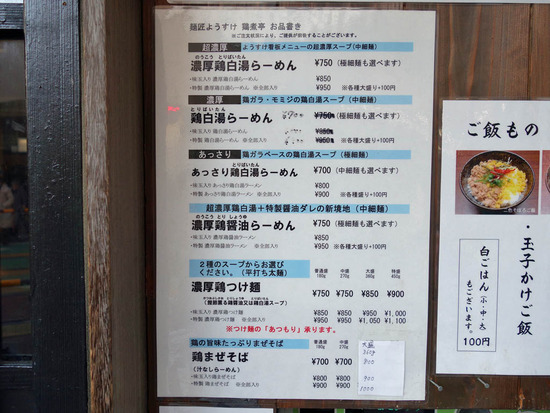 麺匠ようすけ 鶏煮亭 お品書き
※ご注文状況により、ご提供が前後することがございます。
超濃厚 ようすけ看板メニューの超濃厚スープ(中細麺)
のうこう とりぱいたん
濃厚鶏白湯らーめん ¥750(極細麺も選べます)
・味玉入り 濃厚鶏白湯らーめん ¥850
・特製 濃厚鶏白湯らーめん ※全部入り ¥950 ※各種大盛り+100円
濃厚 鶏ガラ・モミジの鶏白湯スープ(中細麺)
とりぱいたん
鶏白湯らーめん ¥750(極細麺も選べます)
・味玉入り 鶏白湯らーめん ¥850
・特製 鶏白湯らーめん ※全部入り ¥950 ※各種大盛り+100円
あっさり 鶏ガラベースの鶏白湯スープ(極細麺)
とりぱいたん
あっさり鶏白湯らーめん ¥700(中細麺も選べます)
・味玉入り あっさり鶏白湯ラーメン ¥800
・特製 あっさり鶏白湯ラーメン ※全部入り ¥900 ※各種大盛り+100円
超濃厚鶏白湯+特製醤油ダレの新境地(中細麺)
のうこう とり しょうゆ
濃厚鶏醤油らーめん ¥750
・味玉入り 濃厚鶏醤油ラーメン ¥850
・特製 濃厚鶏醤油ラーメン ※全部入り ¥950 ※各種大盛り+100円
2種のスープからお選びください。(平打ち太麺)
普通盛 180g 中盛 270g 大盛 360g 特盛 450g
濃厚鶏つけ麺 ¥750 ¥750 ¥850 ¥900
・味玉入り 濃厚鶏つけ麺 ¥850 ¥850 ¥950 ¥1,000
・特製 濃厚鶏つけ麺 ※全部入り ¥950 ¥950 ¥1,050 ¥1,100
※つけ麺の「あつもり」承ります。
鶏の旨味たっぷりまぜそば
普通盛 180g 中盛 270g
鶏まぜそば ¥700 ¥700
(汁なしらーめん)
・味玉入り 鶏まぜそば ¥800 ¥800
・特製 鶏まぜそば ※全部入り ¥900 ¥900
大盛
360g
800
900
1000
ご飯もの
・玉子かけご飯
白ごはん(小・中・大)
もございます。
100円